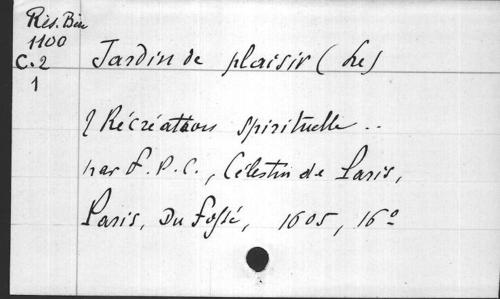 Rés. Bin
1100
C. 2
1
Jardin de plaisir (Le)
& Récréation spirituelle ..
par F. P. C., Célestin de Paris,
Paris, Du Fossé, 1605, 16°